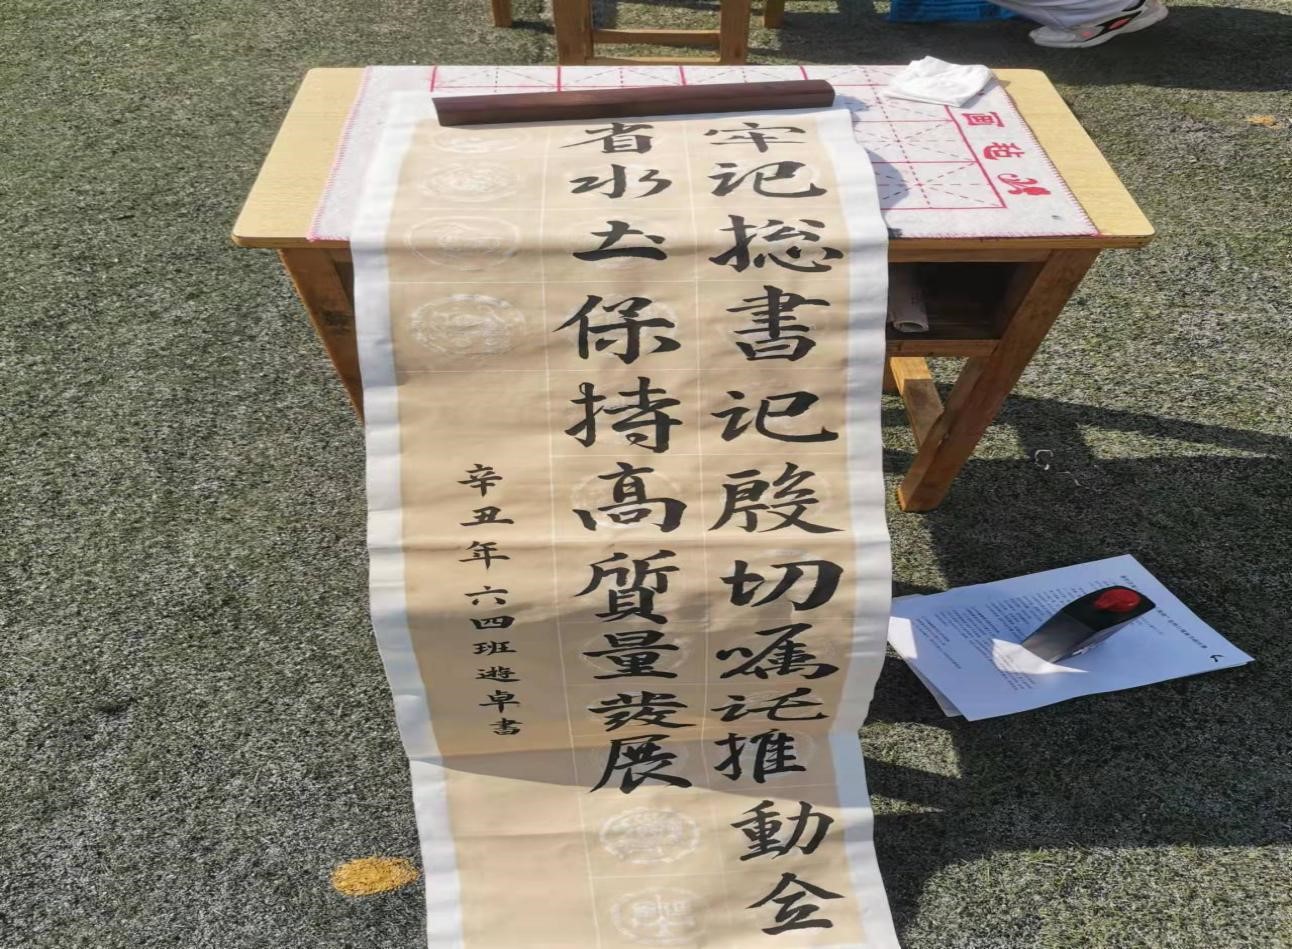 牢记捴書记殷切嘱讬推動全
省水土保持高質量發展
辛丑年六四班遊卓書
画毡